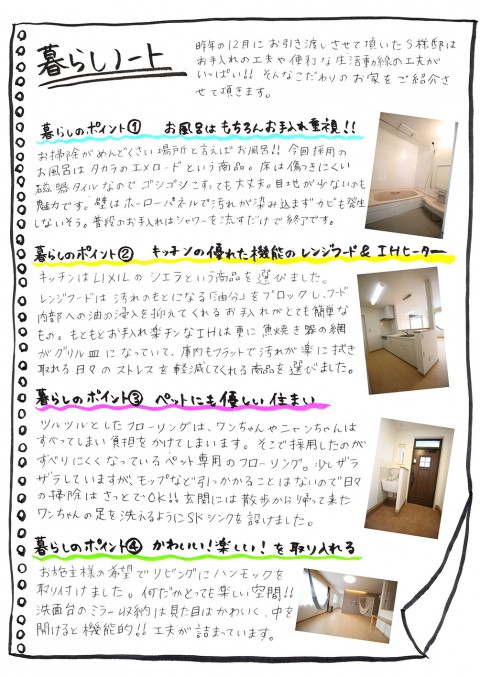 暮らしノート
昨年の12月にお引き渡しさせて頂いたS様邸は
お手入れの工夫や便利な生活動線の工夫が
いっぱい!! そんなこだわりのお家をご紹介さ
せて頂きます。
暮らしのポイント① お風呂はもちろんお手入れ重視!!
お掃除がめんどくさい場所と言えばお風呂!! 今回採用の
お風呂はタカラのエメロードという商品。床は傷つきにくい
磁器タイルなのでゴシゴシこすっても大丈夫。目地が少ないのも
魅力です。壁はホーローパネルで汚れが染み込まずカビも発生
しないそう。普段のお手入れはシャワーを流すだけで終了です。
暮らしのポイント② キッチンの優れた機能のレンジフード& IHヒーター
キッチンはLIXILのシエラという商品を選びました。
レンジフードは汚れのもとになる「油分」をブロックし、フード
内部への油の浸入を抑えてくれるお手入れがとても簡単な
もの。もともとお手入れ楽チンなIHは更に魚焼き器の網
がグリル皿になっていて、庫内もフラットで汚れが楽に拭き
取れる日々のストレスを軽減してくれる商品を選びました。
暮らしのポイント③ ペットにも優しい住まい
ツルツルとしたフローリングは、ワンちゃんやニャンちゃんは
すべってしまい負担をかけてしまいます。そこで採用したのが
すべりにくくなっているペット専用のフローリング。少しザラ
ザラしていますが、モップなど引っかかることはないので日々
の掃除はさっとでOK!! 玄関には散歩から帰って来た
ワンちゃんの足を洗えるようにSKシンクを設けました。
暮らしのポイント④ かわいい!楽しい!を取り入れる
お施主様の希望でリビングにハンモックを
取り付けました。何だかとっても楽しい空間!!
洗面台のミラー収納は見た目はかわいく、中を
開けると機能的!! 工夫が詰まっています。